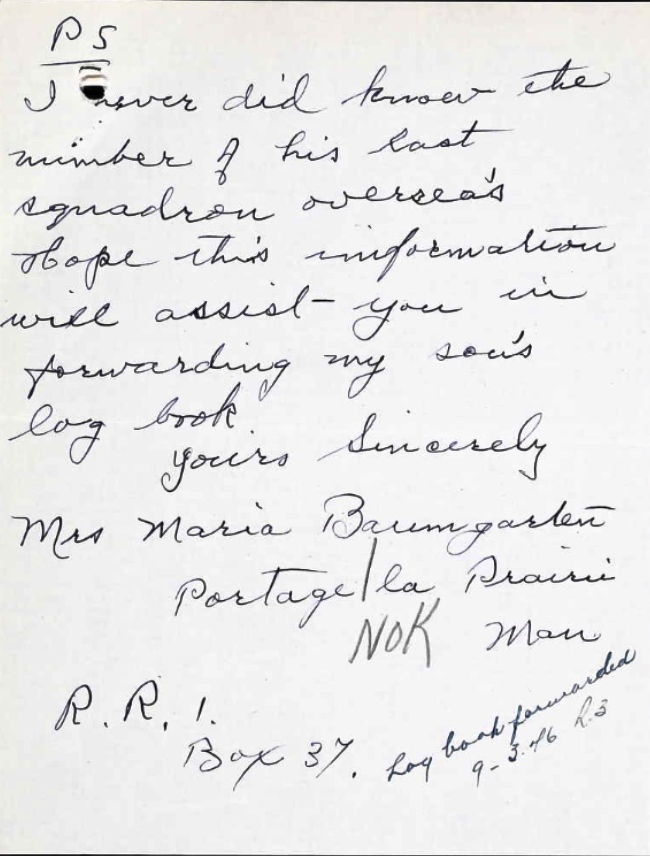 PS
I never did know the
number of his last
squadron oversea's
Hope this information
will assist you in
forwarding my son's
log book
yours Sincerely
Mrs Maria Baumgarten
Portage / la Prairie
NOK Man
R. R. 1.
Box 37.
Log book forwarded
9-3.46 R.3